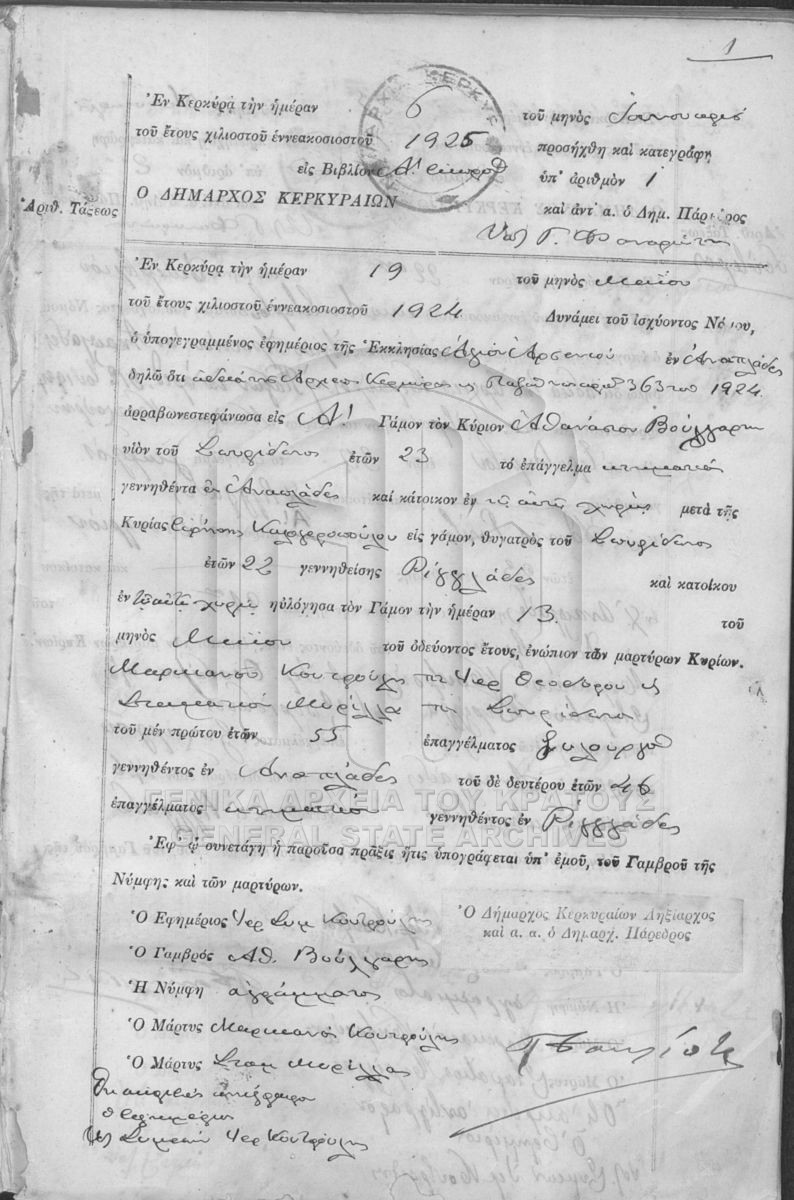 1
Ἐν Κερκύρᾳ τὴν ἡμέραν 6 τοῦ μηνὸς Ἰανουαρίου
τοῦ ἔτους χιλιοστοῦ ἐννεακοσιοστοῦ 1925 προσήχθη καὶ κατεγράφη
εἰς Βιβλίον Α! ὑπ' ἀριθμὸν 1
Ἀριθ. Τάξεως
Ο ΔΗΜΑΡΧΟΣ ΚΕΡΚΥΡΑΙΩΝ καὶ ἀντ' α. ὁ Δημ. Πάρεδρος
Γ.
Ἐν Κερκύρᾳ τὴν ἡμέραν 19 τοῦ μηνὸς Μαΐου
τοῦ ἔτους χιλιοστοῦ ἐννεακοσιοστοῦ 1924 Δυνάμει τοῦ ἰσχύοντος Νόμου,
ὁ ὑπογεγραμμένος ἐφημέριος τῆς Ἐκκλησίας Ἁγίου Ἀρσενίου ἐν Ἀναπλάδες
δηλῶ ὅτι ἀδείᾳ τῆς Ἀρχιεπ. Κερκύρας 363 1924
ἀρραβωνεστεφάνωσα εἰς Α! Γάμον τὸν Κύριον Ἀθανάσιον Βούλγαρη
υἱὸν τοῦ Σπυρίδωνος ἐτῶν 23 τὸ ἐπάγγελμα κτηματίας
γεννηθέντα ἐν Ἀναπλάδες καὶ κάτοικον ἐν τῷ αὐτῷ χωρίῳ μετὰ τῆς
Κυρίας Εἰρήνης εἰς Α γάμον, θυγατρὸς τοῦ Σπυρίδωνος
ἐτῶν 22 γεννηθείσης Ριγγλάδες καὶ κατοίκου
ἐν τῷ αὐτῷ χωρίῳ ηὐλόγησα τὸν Γάμον τὴν ἡμέραν 13. τοῦ
μηνὸς Μαΐου τοῦ ὁδεύοντος ἔτους, ἐνώπιον τῶν μαρτύρων Κυρίων.
Μαρκιανοῦ Κουτρούλη τοῦ Ἱερ Θεοδώρου
Σταματίου Μωρίλλα τοῦ Σπυρίδωνος
τοῦ μέν πρώτου ἐτῶν 55 ἐπαγγέλματος ξυλουργοῦ
γεννηθέντος ἐν Ἀναπλάδες τοῦ δὲ δευτέρου ἐτῶν 46
ἐπαγγέλματος κτηματίου γεννηθέντος ἐν Ριγγλάδες
ΓΕΝΙΚΑ ΑΡΧΕΙΑ ΤΟΥ ΚΡΑΤΟΥΣ
GENERAL STATE ARCHIVES
Ἐφ' ᾧ συνετάγη ἡ παροῦσα πρᾶξις ἥτις ὑπογράφεται ὑπ' ἐμοῦ, τοῦ Γαμβροῦ τῆς
Νύμφης καὶ τῶν μαρτύρων.
Ὁ Ἐφημέριος Ἱερ Συμ Κουτρούλης
Ὁ Δήμαρχος Κερκυραίων Ληξίαρχος
καὶ α. α. ὁ Δημαρχ. Πάρεδρος
Ὁ Γαμβρὸς Αθ. Βούλγαρης
Ἡ Νύμφη ἀγράμματος
Ὁ Μάρτυς Μαρκιανὸς Κουτρούλης
Ὁ Μάρτυς Σταμ Μωρίλλας
Ὅτι ἀκριβὲς ἀντίγραφον
Ὁ Ἐφημέριος
Συμεὼν Ἱερ Κουτρούλης